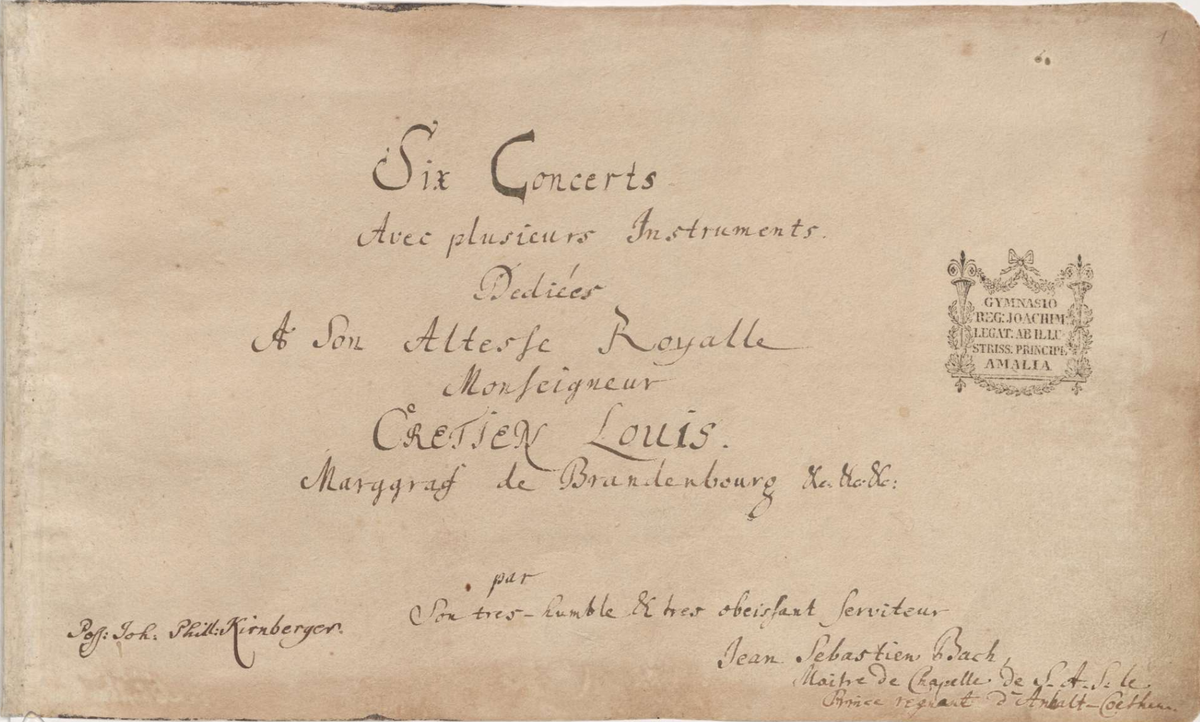 1
Six Concerts
Avec plusieurs Instruments.
Dediées
A Son Altesse Royalle
Monseigneur
CRETIEN LOUIS.
Marggraf de Brandenbourg &c. &c. &c:
GYMNASIO
REG: JOACHIM:
LEGAT. AB ILLU-
STRISS. PRINCIPE
AMALIA
par
Son tres-humble & tres obeissant serviteur
Poss: Joh: Phill: Kirnberger.
Jean Sebastien Bach,
Maitre de Chapelle de S. A. S. le
Prince regnant d'Anhalt-Coethen.